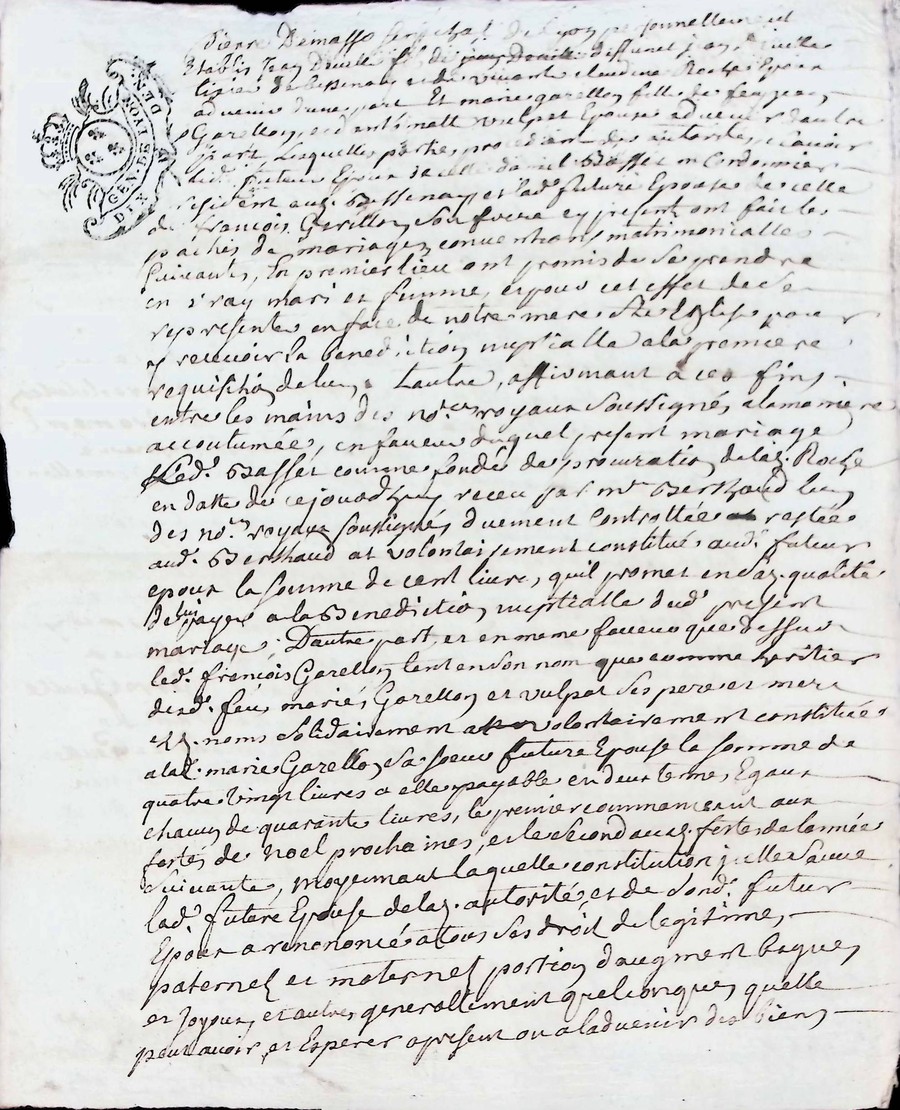 Pierre Demasso senechal de Lyon personnellement
Etablis Jean Douille fil de
de Bessenay et de vivante claudine Roche Epoux
advenir d'une part Et marie garellon fille de feu jean
Garellon, et d'ant.tte vulpat Epouse advenir d'autre
part, Lesquelles parties procedant des autorités, scavoir
led. futeur Epoux de celle daniel Basset m.e Cordonnier
resident aud. Bessenay, et lad. future Epouse de celle
de francois Garellon son frere cy present ont fait les
pachés de mariage, conventions matrimonialles
suivantes, En premier lieu ont promis de se prendre
en vray mari et femme, et pour cet effet de se
representer en face de notre mere Ste Eglise pour
y recevoir la benediction nuptialle a la premiere
requisition de lun, Lautre, affirmant a ces fins
entre les mains des no.res royaux soussignés, a la maniere
accoutumée, en faveur duquel present mariage
Led. Basset comme fondé de procuration de lad. Roche
en datte de cejourd'huy receu par m.e Berthaud lun
des no.res royaux soussignés duement controllée restée
aud. Berthaud at volontairement constitué aud. futeur
epoux la somme de cent livres, quil promet en sad. qualité
de luy payer a la Benediction nuptialle dud. present
mariage ; D'autre part, et en meme faveur que dessus
led. francois Garellon tant en son nom que comme heritier
desd. feus mariés Garellon et vulpat ses pere et mere
esd. noms solidairement volontairement constitués
a lad. marie Garellon sa soeur future Epouse la somme de
quatre vingt livres a elle payable en deux terme, Egaux
chacun de quarante livres, le premier commencant aux
fertes de Noel prochaines, et le second auxd. fertes de lannée
suivante, moyennant laquelle constitution icelle
lad. future Epouse de lad. autorité, et de sond. futur
Epoux a renononcé a tous ses droit de legitime,
paternel et maternel portion d'augment bagues
et Joyaux, et autres generallement quelconques quelle
peut avoir, et Esperer a present ou a ladvenir des biens
GEN. DE LION
DEN.
DIX